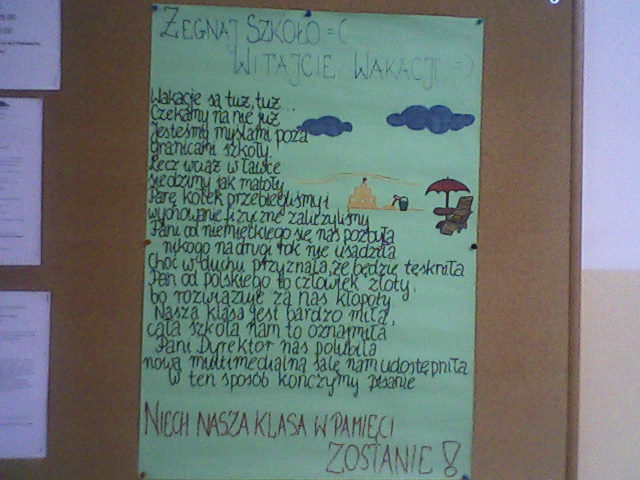 ŻEGNAJ SZKOŁO =(
WITAJCIE WAKACJE =)
Wakacje są tuż, tuż...
Czekamy na nie już
Jesteśmy myślami poza
granicami szkoły
Lecz wciąż w ławce
siedzimy jak matoły
Parę kółek przebiegliśmy i
wychowanie fizyczne zaliczyliśmy
Pani od niemieckiego się nas pozbyła
nikogo na drugi rok nie usadziła
Choć w duchu przyznała, że będzie tęskniła
Pan od polskiego to człowiek złoty,
bo rozwiązuje za nas kłopoty
Nasza klasa jest bardzo miła,
cała szkoła nam to oznajmiła
Pani Dyrektor nas polubiła
nową multimedialną salę nam udostępniła
W ten sposób kończymy pisanie
NIECH NASZA KLASA W PAMIĘCI
ZOSTANIE!